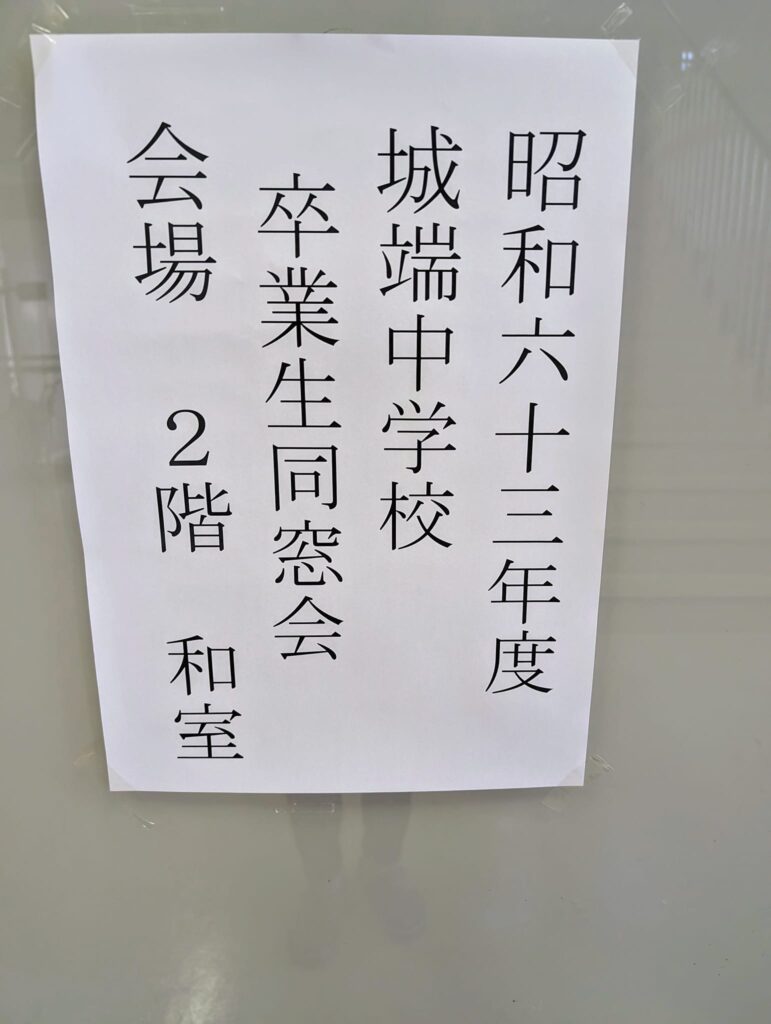 昭和六十三年度
城端中学校
卒業生同窓会
会場　2階　和室